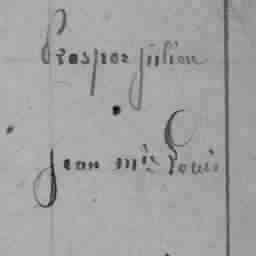 Prosper julien
jean mie Louis